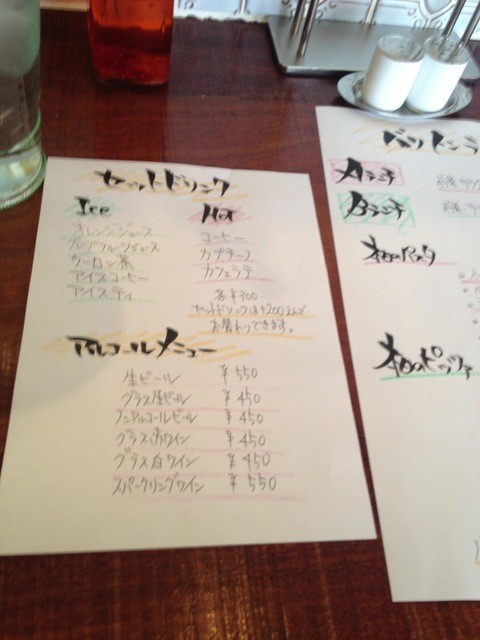 セットドリンク
Ice
オレンジジュース
グレープフルーツジュース
ウーロン茶
アイスコーヒー
アイスティ
Hot
コーヒー
カプチーノ
カフェラテ
各¥300
セットドリンクは+200えんで
お替わりできます。
アルコールメニュー
生ビール ¥550
グラス生ビール ¥450
ノンアルコールビール ¥450
グラス赤ワイン ¥450
グラス白ワイン ¥450
スパークリングワイン ¥550
Aランチ
Bランチ
本日のパスタ
本日のピッツァ